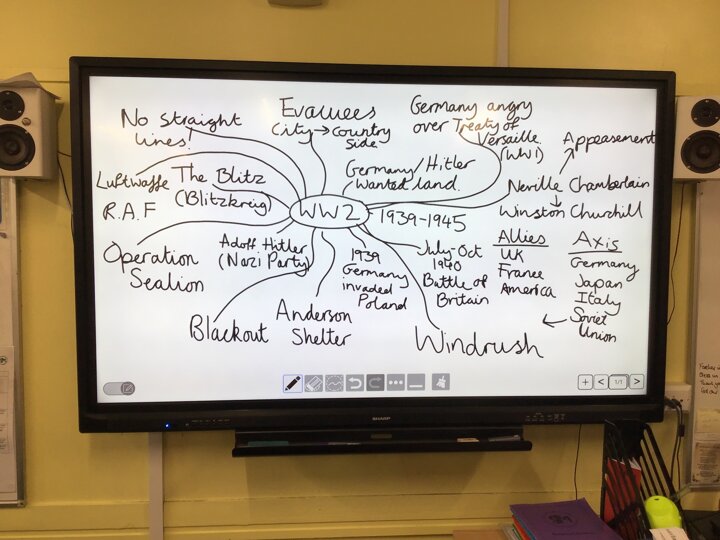 No straight
lines!
Evacuees
City → country
side
Germany angry
over Treaty of
Versaille
(WW1)
Appeasement
Luftwaffe
R.A.F
The Blitz
(Blitzkreig)
Germany/Hitler
wanted land.
Neville Chamberlain
Winston Churchill
WW2
1939-1945
Operation
Sealion
Adolf Hitler
(Nazi Party)
1939
Germany
invaded
Poland
July-Oct
1940
Battle of
Britain
Allies
UK
France
America
Axis
Germany
Japan
Italy
Soviet
Union
Blackout
Anderson
Shelter
Windrush
1/1
SHARP